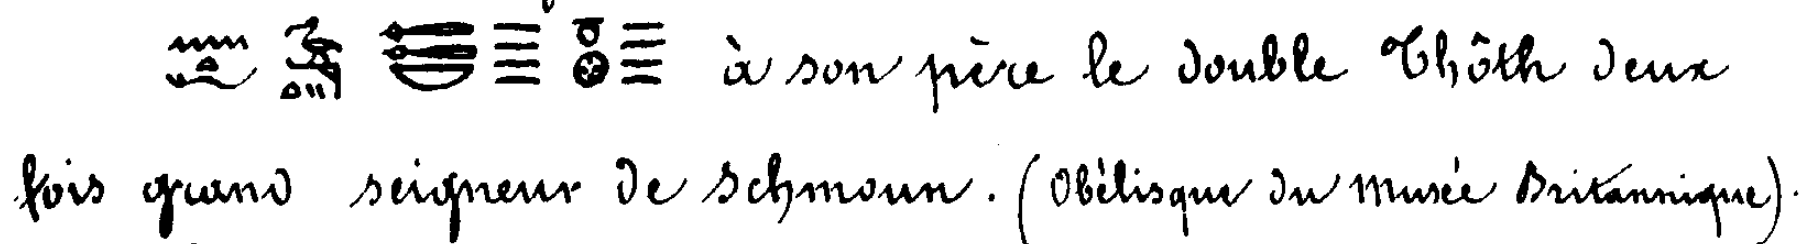 à son père le double Thôth deux
fois grand seigneur de Schmoun. (Obélisque du Musée Britannique).